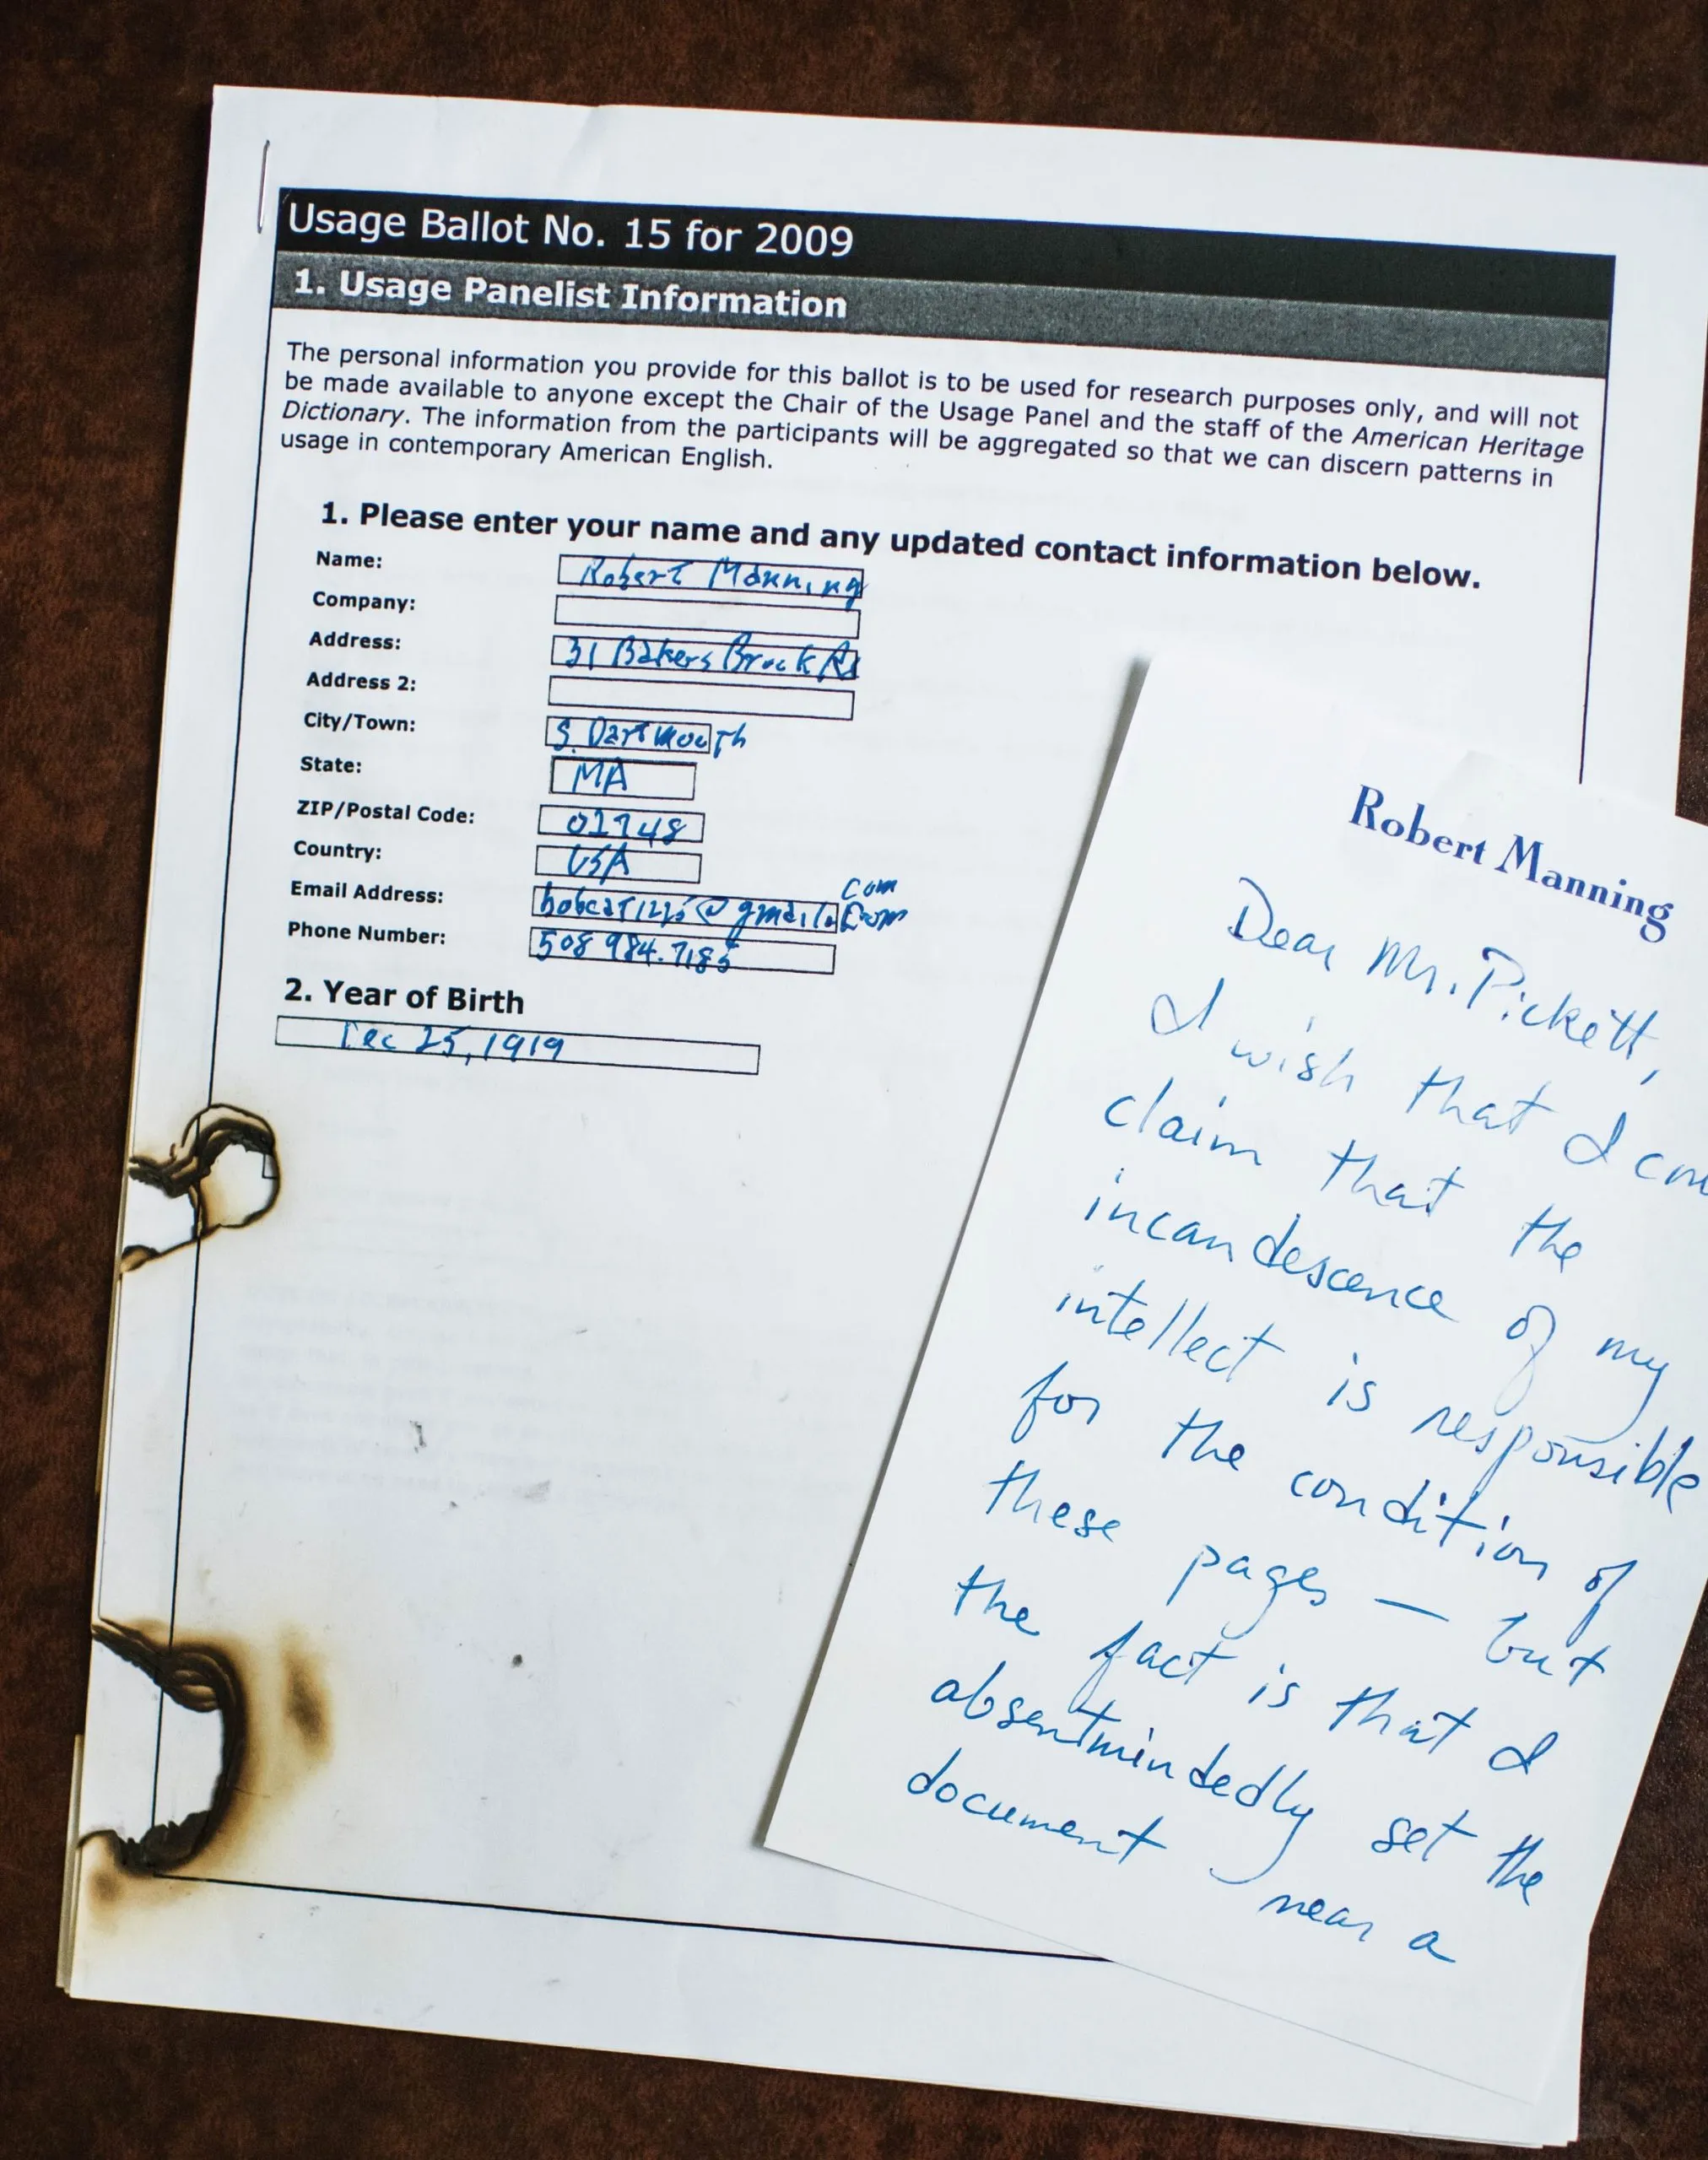 Usage Ballot No. 15 for 2009
1. Usage Panelist Information
The personal information you provide for this ballot is to be used for research purposes only, and will not
be made available to anyone except the Chair of the Usage Panel and the staff of the American Heritage
Dictionary. The information from the participants will be aggregated so that we can discern patterns in
usage in contemporary American English.
1. Please enter your name and any updated contact information below.
Name: Robert Manning
Company:
Address: 31 Bakers Brook Rd
Address 2:
City/Town: S. Dartmouth
State: MA
ZIP/Postal Code: 01748
Country: USA
Email Address: @gmail.com
com
Phone Number: 508 984.7185
2. Year of Birth
Dec 25, 1919
Robert Manning
Dear Mr. Pickett,
I wish that I
claim that the
incandescence of my
intellect is responsible
for the condition of
these pages — but
the fact is that I
absentmindedly set the
document near a